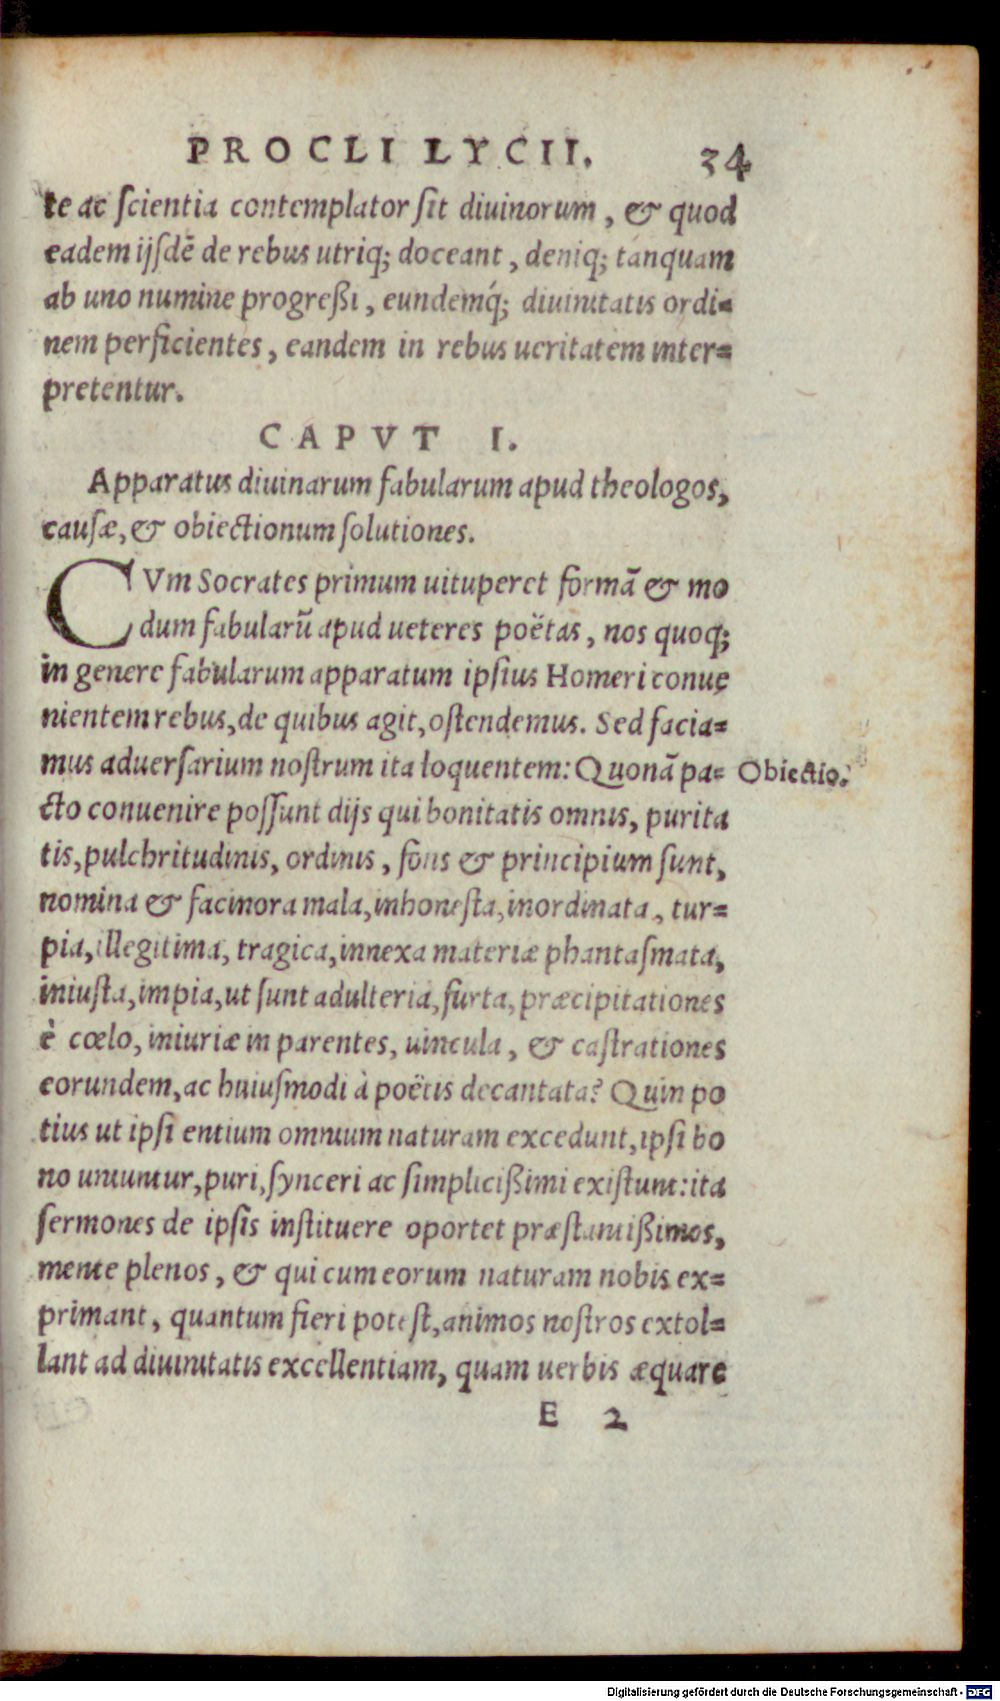 PROCLI LYCII. 34
te ac ſcientia contemplator ſit diuinorum, & quod
eadem ijſdē de rebus utriq; doceant, deniq; tanquam
ab uno numine progreßi, eundemq́; diuinitatis ordi=
nem perficientes, eandem in rebus ueritatem inter=
pretentur.
CAPVT I.
Apparatus diuinarum fabularum apud theologos,
cauſæ, & obiectionum ſolutiones.
CVm Socrates primum uituperet formā & mo
dum fabularū apud ueteres poëtas, nos quoq;
in genere fabularum apparatum ipſius Homeri conue
nientem rebus, de quibus agit, oſtendemus. Sed facia=
mus aduerſarium noſtrum ita loquentem: Quonā pa= Obiectio.
cto conuenire poſſunt dijs qui bonitatis omnis, purita
tis, pulchritudinis, ordinis, fons & principium ſunt,
nomina & facinora mala, inhoneſta, inordinata, tur=
pia, illegitima, tragica, innexa materiæ phantaſmata,
iniuſta, impia, ut ſunt adulteria, furta, præcipitationes
è cœlo, iniuriæ in parentes, uincula, & caſtrationes
eorundem, ac huiuſmodi à poëtis decantata? Quin po
tius ut ipſi entium omnium naturam excedunt, ipſi bo
no uniuntur, puri, ſynceri ac ſimplicißimi exiſtunt: ita
ſermones de ipſis inſtituere oportet præſtantißimos,
mente plenos, & qui cum eorum naturam nobis ex=
primant, quantum fieri poteſt, animos noſtros extol=
lant ad diuinitatis excellentiam, quam uerbis æquare
E 2
Digitalisierung gefördert durch die Deutsche Forschungsgemeinschaft - DFG